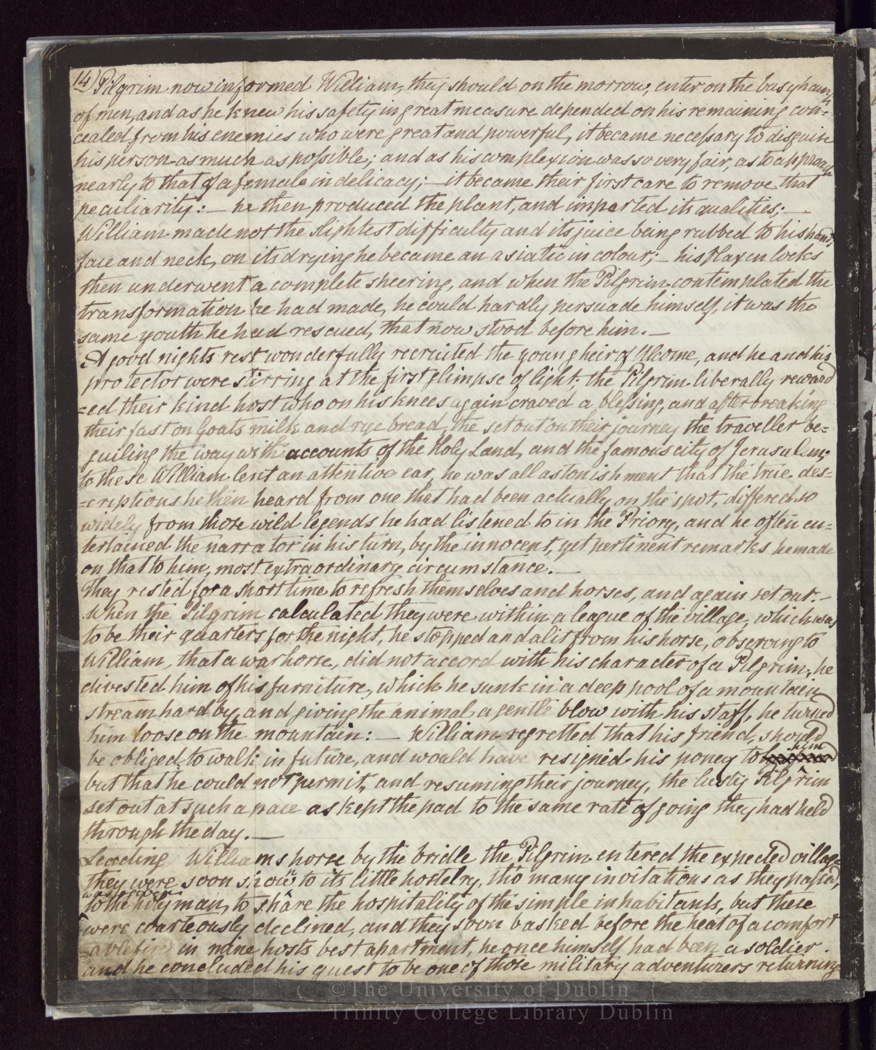 14) Pilgrim now informed William, they should on the morrow, enter on the busy haunts
of men, and as he knew his safety in great measure depended on his remaining con-
cealed from his enemies who were great and powerful, it became necessary to disguise
his person as much as possible; and as his complexion was so very fair, as to approach
nearly to that of a female in delicacy; — it became their first care to remove that
peculiarity: — he then produced the plant, and imparted its qualities; —
William made not the slightest difficulty and its juice being rubbed to his hands,
face and neck, on its drying he became an asiatic in colour; — his flaxen locks
then underwent a complete sheering, and when the Pilgrim contemplated the
transformation he had made, he could hardly persuade himself, it was the
same youth he had rescued, that now stood before him. —
A good nights rest wonderfully recruited the young heir of and he and his
protector were stirring at the first glimpse of light. the Pilgrim liberally reward
=ed their kind host who on his knees again craved a blessing, and after breaking
their fast on Goats milk and rye bread, the set out on their journey the traveller be=
guiling the way with accounts of the Holy Land, and the famous city of Jerusalem;
to these William lent an attentive ear, he was all astonishment that the true des=
=criptions he then heard from one that had been actually on the spot, differed so
widely from those wild legends he had listened to in the Priory, and he often en-
tertained the narrator in his turn, by the innocent, yet pertinent remarks he made
on that to him, most extraordinary circumstance. —
They rested for a short time to refresh themselves and horses, and again set out. —
When the Pilgrim calculated they were within a league of the village, which was
to be their quarters for the night, he stopped and alit from his horse, observing to
William, that a war horse, did not accord with his character of a Pilgrim, he
divested him of his furniture, which he sunk in a deep pool of a mountain
stream hard by, and giving the animal a gentle blow with his staff, he turned
him loose on the mountain: — William regretted that his friend, should
be obliged to walk in future, and would have resigned his poney to him
but that he could not permit, and resuming their journey, the lusty Pilgrim
set out at such a pace as kept the pad to the same rate of going they had held
through the day. —
Leading Williams horse by the bridle the Pilgrim entered the expected village
they were soon shown to its little hostelry, tho many invitations as they passed,
was
to the holy man, to share the hospitality of the simple inhabitants, but these
were courteously declined, and they soon basked before the heat of a comfort
able fire in mine hosts best apartment, he once himself had been a soldier.
and he concluded his guest to be one of those military adventurers returning
©The University of Dublin
Trinity College Library Dublin